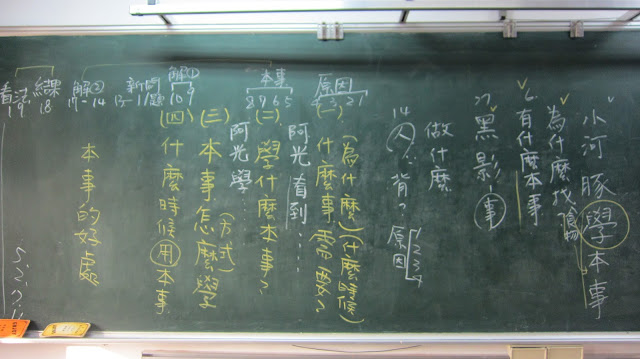 小河豚學本事
為什麼找食物
6.有什麼本事
7.黑影:事
做什麼
14
囚:背?
原因
1
2
3
4
原因
4 3 2 1
(一)
(為什麼)(什麼時候)
什麼事需要?
阿光看到……
本事
8 7 6 5
(二)
學什麼本事?
阿光學……
(三)
本事怎麼學
(方式)
解①
10 9
(四)
什麼時候用本事
新問題
13-11
解②
17-14
本事的好處
結果
18
看法
19